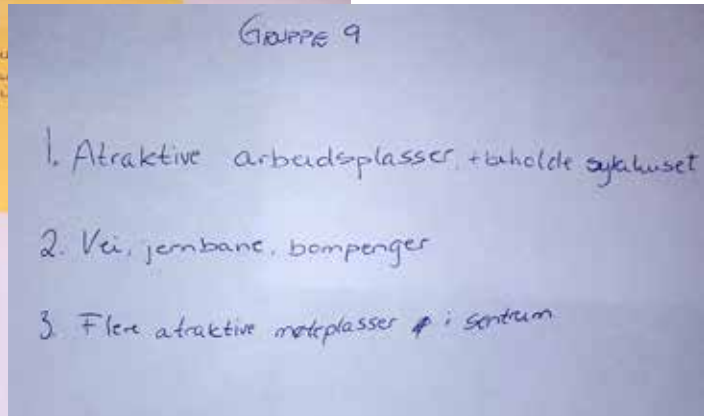 GRUPPE 9
1. Atraktive arbeidsplasser, + beholde sykehuset
2. Vei, jernbane, bompenger
3. Flere atraktive møteplasser i sentrum